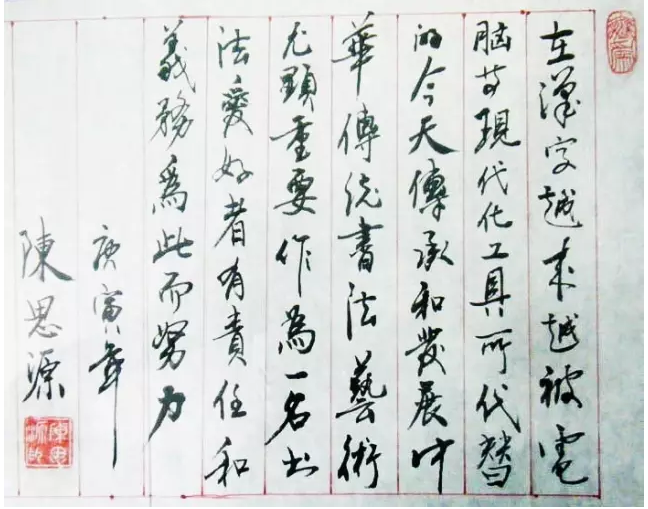 在漢字越来越被電
脑等現代化工具所代替
的今天傳承和發展中
華傳統書法藝術
尤顯重要作為一名书
法愛好者有責任和
義務爲此而努力
庚寅年
陳思源